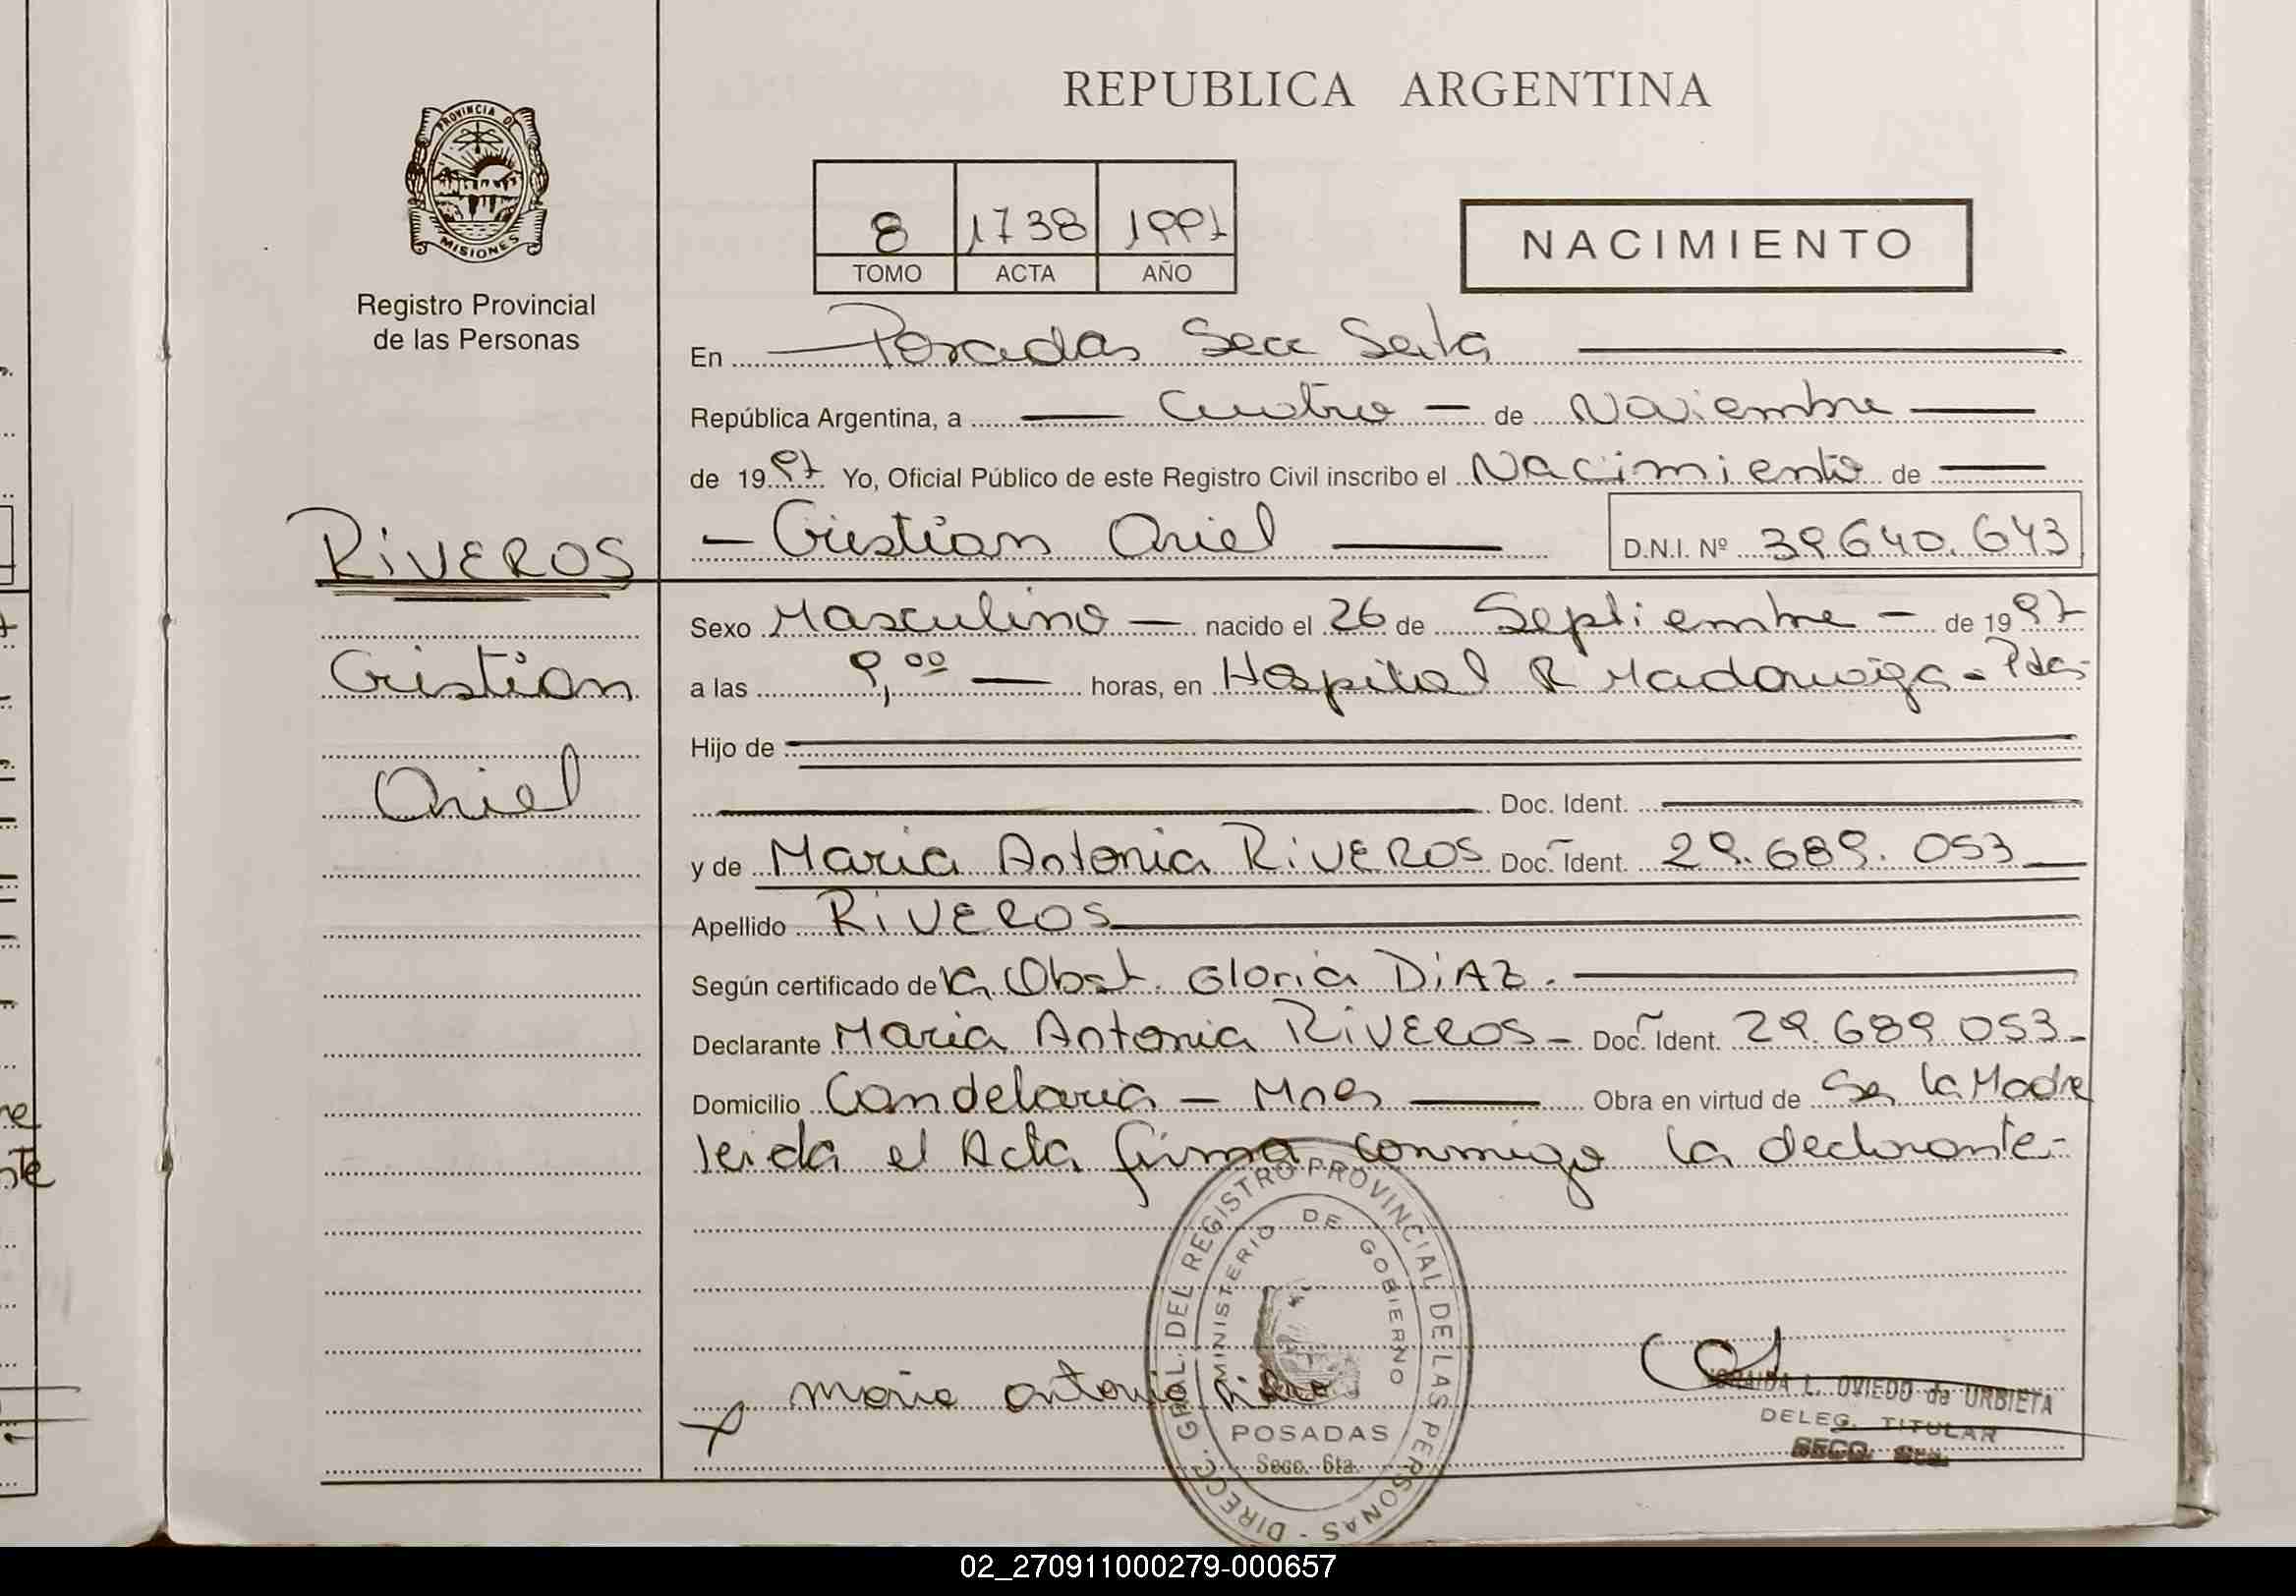 REPUBLICA ARGENTINA
PROVINCIA DE
MISIONES
Registro Provincial
de las Personas
8 1738 1997
TOMO ACTA AÑO
NACIMIENTO
En Posadas Secc Sexta
República Argentina, a Cuatro de Noviembre
de 1997 Yo, Oficial Público de este Registro Civil inscribo el Nacimiento de
Cristian Ariel D.N.I. Nº 39.640.643
RIVEROS
Cristian
Ariel
Sexo Masculino nacido el 26 de Septiembre de 1997
a las 9,00 horas, en Hospital R Madariaga - Pdas
Hijo de
Doc. Ident.
y de Maria Antonia RIVEROS Doc. Ident. 29.689.053
Apellido RIVEROS
Según certificado de la Obst. Gloria DIAZ.
Declarante Maria Antonia RIVEROS - Doc. Ident. 29.689.053-
Domicilio Candelaria - Mnes Obra en virtud de Ser la Madre
leida el Acta firma conmigo la declarante-
DIRECC. GRAL. DEL REGISTRO PROVINCIAL DE LAS PERSONAS
MINISTERIO DE GOBIERNO
POSADAS
Secc. 6ta.
x maria antonia
L. OVIEDO de URBIETA
DELEG. TITULAR
SECC. 6ta.
02_270911000279-000657